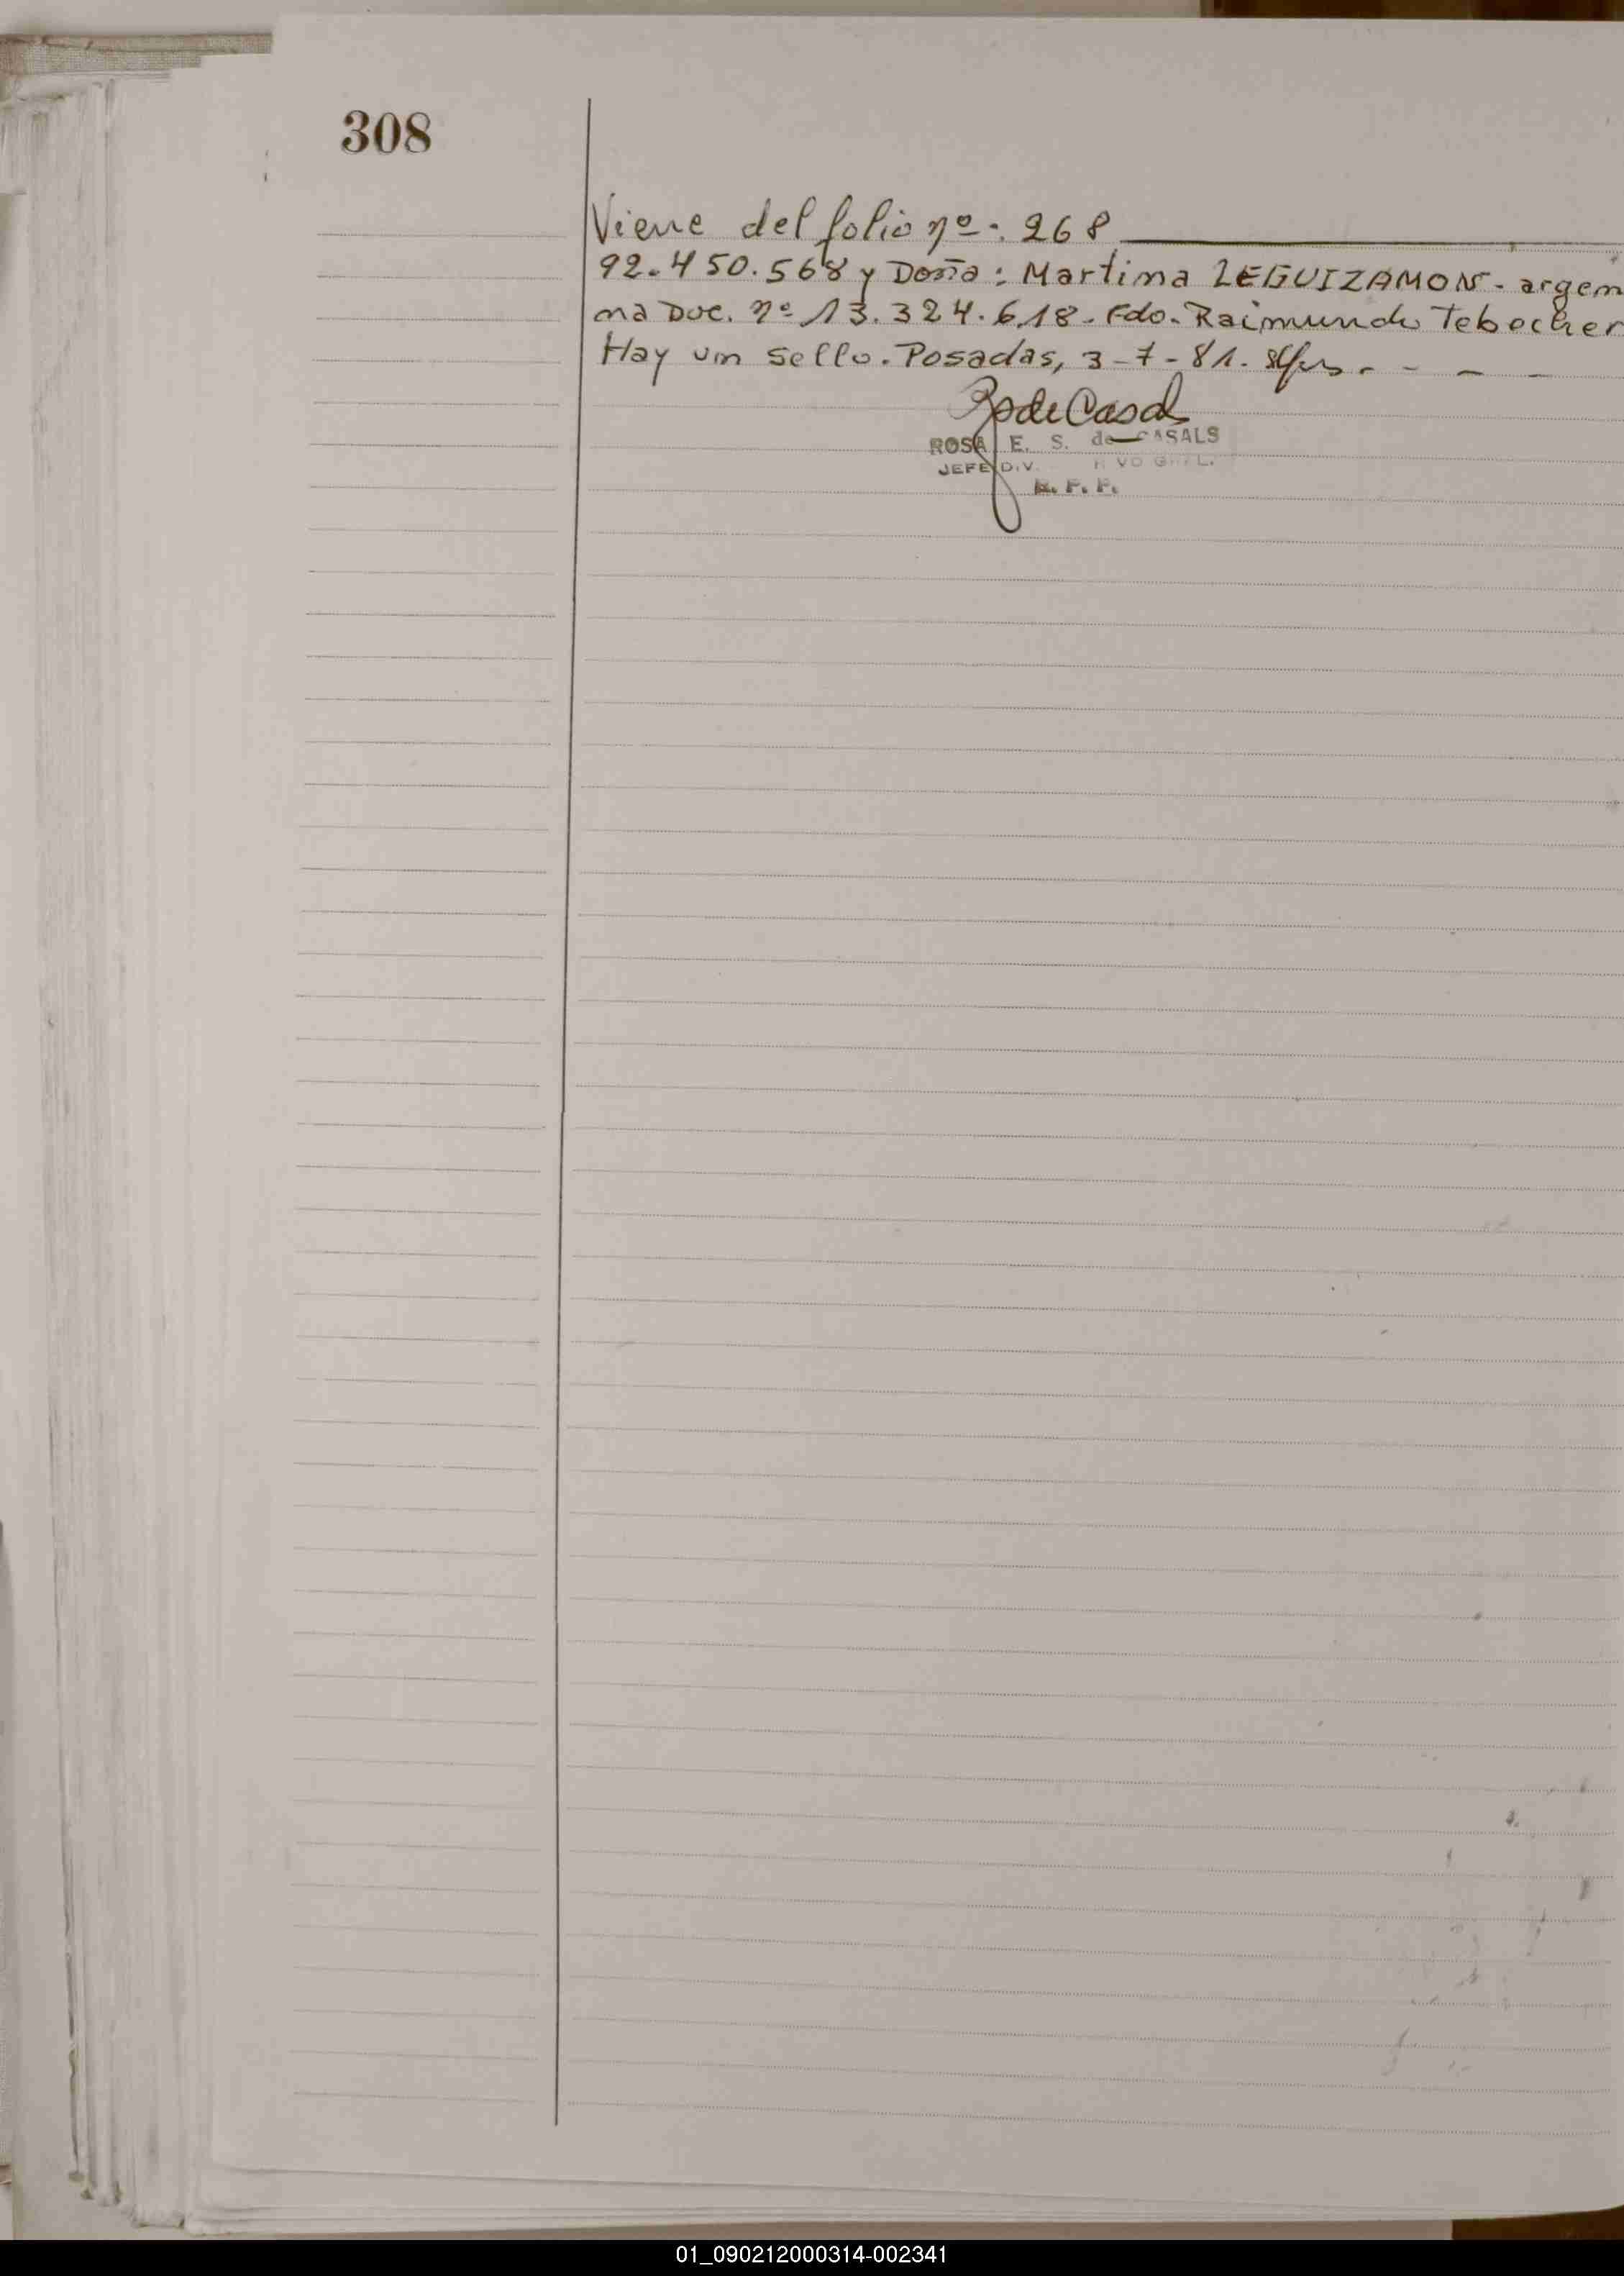 308
Viene del folio nº: 268
92.450.568 y Doña: Martina LEGUIZAMON - argen
na Doc. nº 13.324.618. Fdo. Raimundo Tebecher
Hay un sello. Posadas, 3-7-81.
ROSA E. S. de CASALS
JEFE DIV. VO GRAL.
R. P. P.
01_090212000314-002341